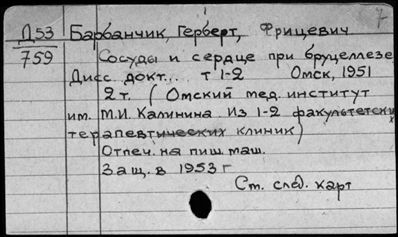 7
Д53 Барбанчик, Герберт, Фрицевич
759
Сосуды и сердце при бруцеллезе
Дисс. докт... т 1-2 Омск, 1951
2 т. (Омский мед. институт
им. М.И. Калинина. Из 1-2 факультетских
терапевтических клиник)
Отпеч. на пиш. маш.
Защ. в 1953 г
Ст. след. карт